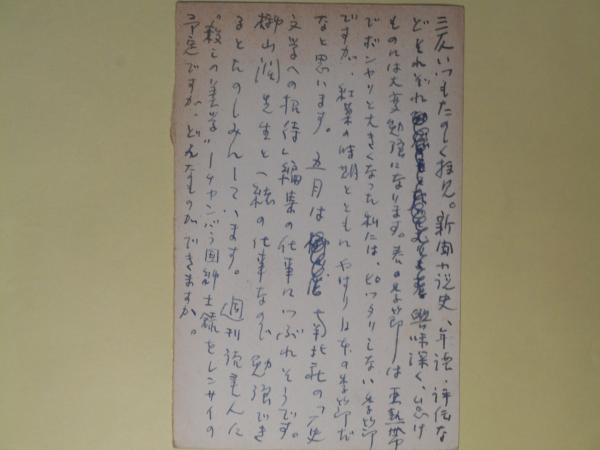 三人いつもたのしく拝見。新聞小説史、年譜・評伝な
どそれぞれ興味深く、なまけ
ものには大変勉強になります。春の季節は亜熱帯
でボンヤリと大きくなった私には、ピッタリしない季節
ですが、紅葉の時期とともにやはり日本の季節だ
なと思います。五月は南北社の「歴史
文学への招待」編集の仕事につぶれそうです。
樺山潤先生と一緒の仕事なので勉強でき
るとたのしみにしています。週刊読書人に
“殺しの美学”―チャンバラ国紳士録をレンサイの
予定ですが、どんなものができますか。